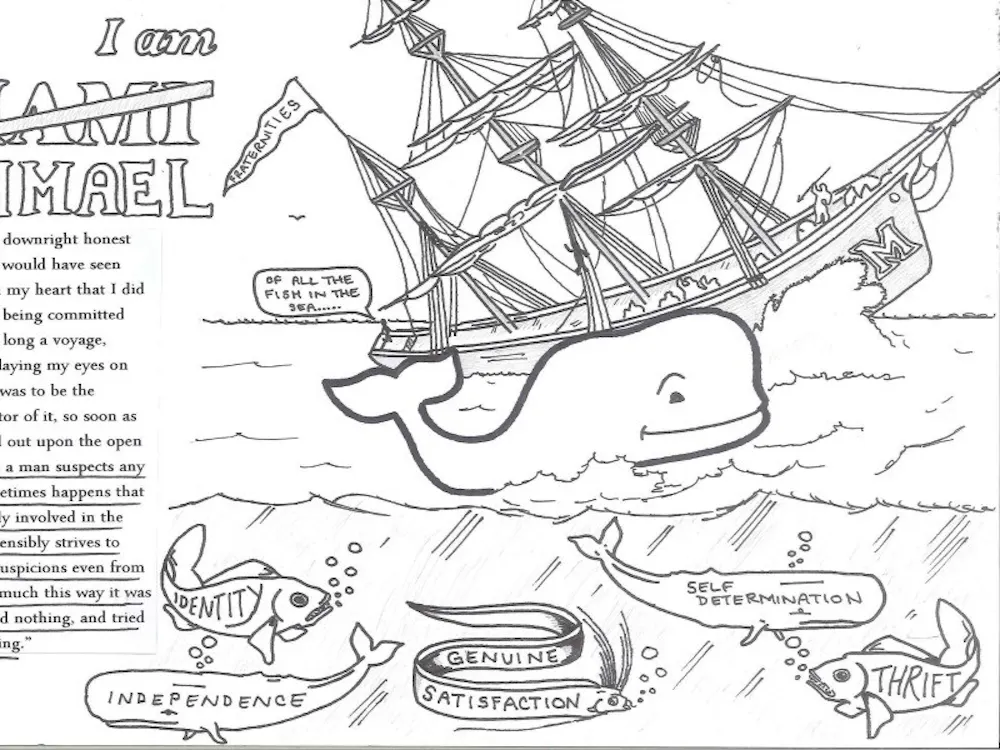 I am
IAMI
IMAEL
downright honest
would have seen
my heart that I did
being committed
long a voyage,
laying my eyes on
was to be the
tor of it, so soon as
out upon the open
a man suspects any
etimes happens that
ly involved in the
ensibly strives to
uspicions even from
much this way it was
d nothing, and tried
ing.”
FRATERNITIES
OF ALL THE
FISH IN THE
SEA.....
M
IDENTITY
INDEPENDENCE
GENUINE
SATISFACTION
SELF
DETERMINATION
THRIFT